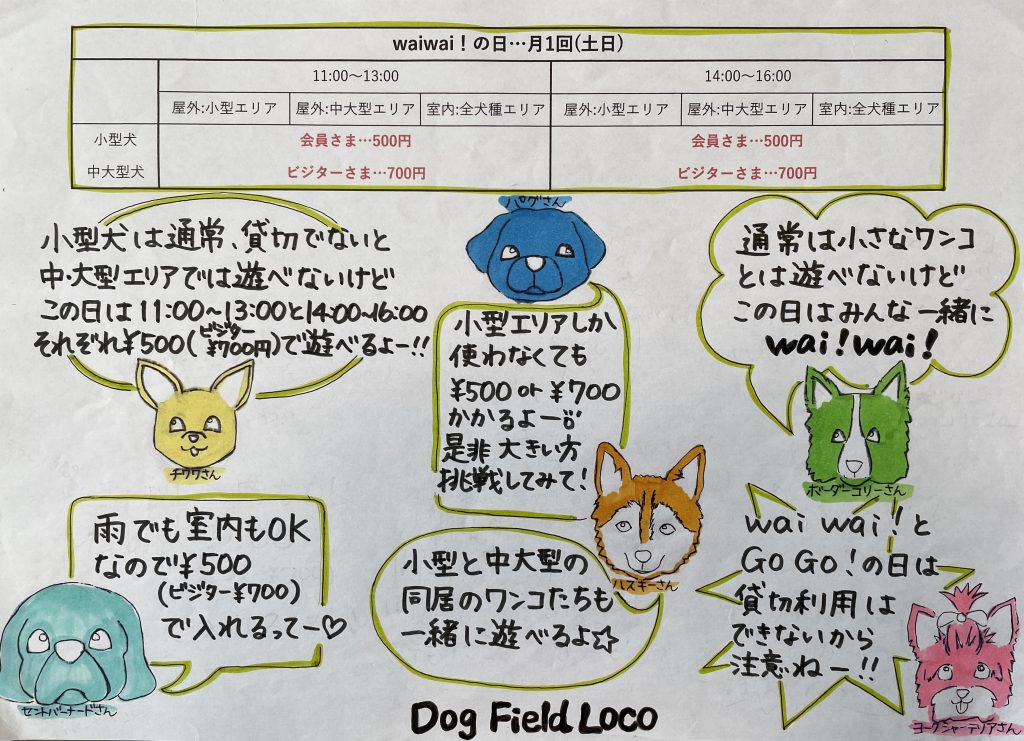 waiwai！の日…月1回(土日)
11:00〜13:00
14:00〜16:00
屋外:小型エリア
屋外:中大型エリア
室内:全犬種エリア
屋外:小型エリア
屋外:中大型エリア
室内:全犬種エリア
小型犬
会員さま…500円
会員さま…500円
中大型犬
ビジターさま…700円
ビジターさま…700円
小型犬は通常、貸切でないと
中・大型エリアでは遊べないけど
この日は11:00〜13:00と14:00〜16:00
それぞれ¥500(ビジター¥700円)で遊べるよー!!
チワワさん
パグさん
小型エリアしか
使わなくても
¥500 or ¥700
かかるよー
是非大きい方
挑戦してみて!
通常は小さなワンコ
とは遊べないけど
この日はみんな一緒に
wai!wai!
ボーダーコリーさん
雨でも室内もOK
なので¥500
(ビジター¥700)
で入れるってー♡
セントバーナードさん
ハスキーさん
小型と中大型の
同居のワンコたちも
一緒に遊べるよ☆
wai wai!と
GO GO!の日は
貸切利用は
できないから
注意ねー!!
ヨークシャーテリアさん
Dog Field Loco